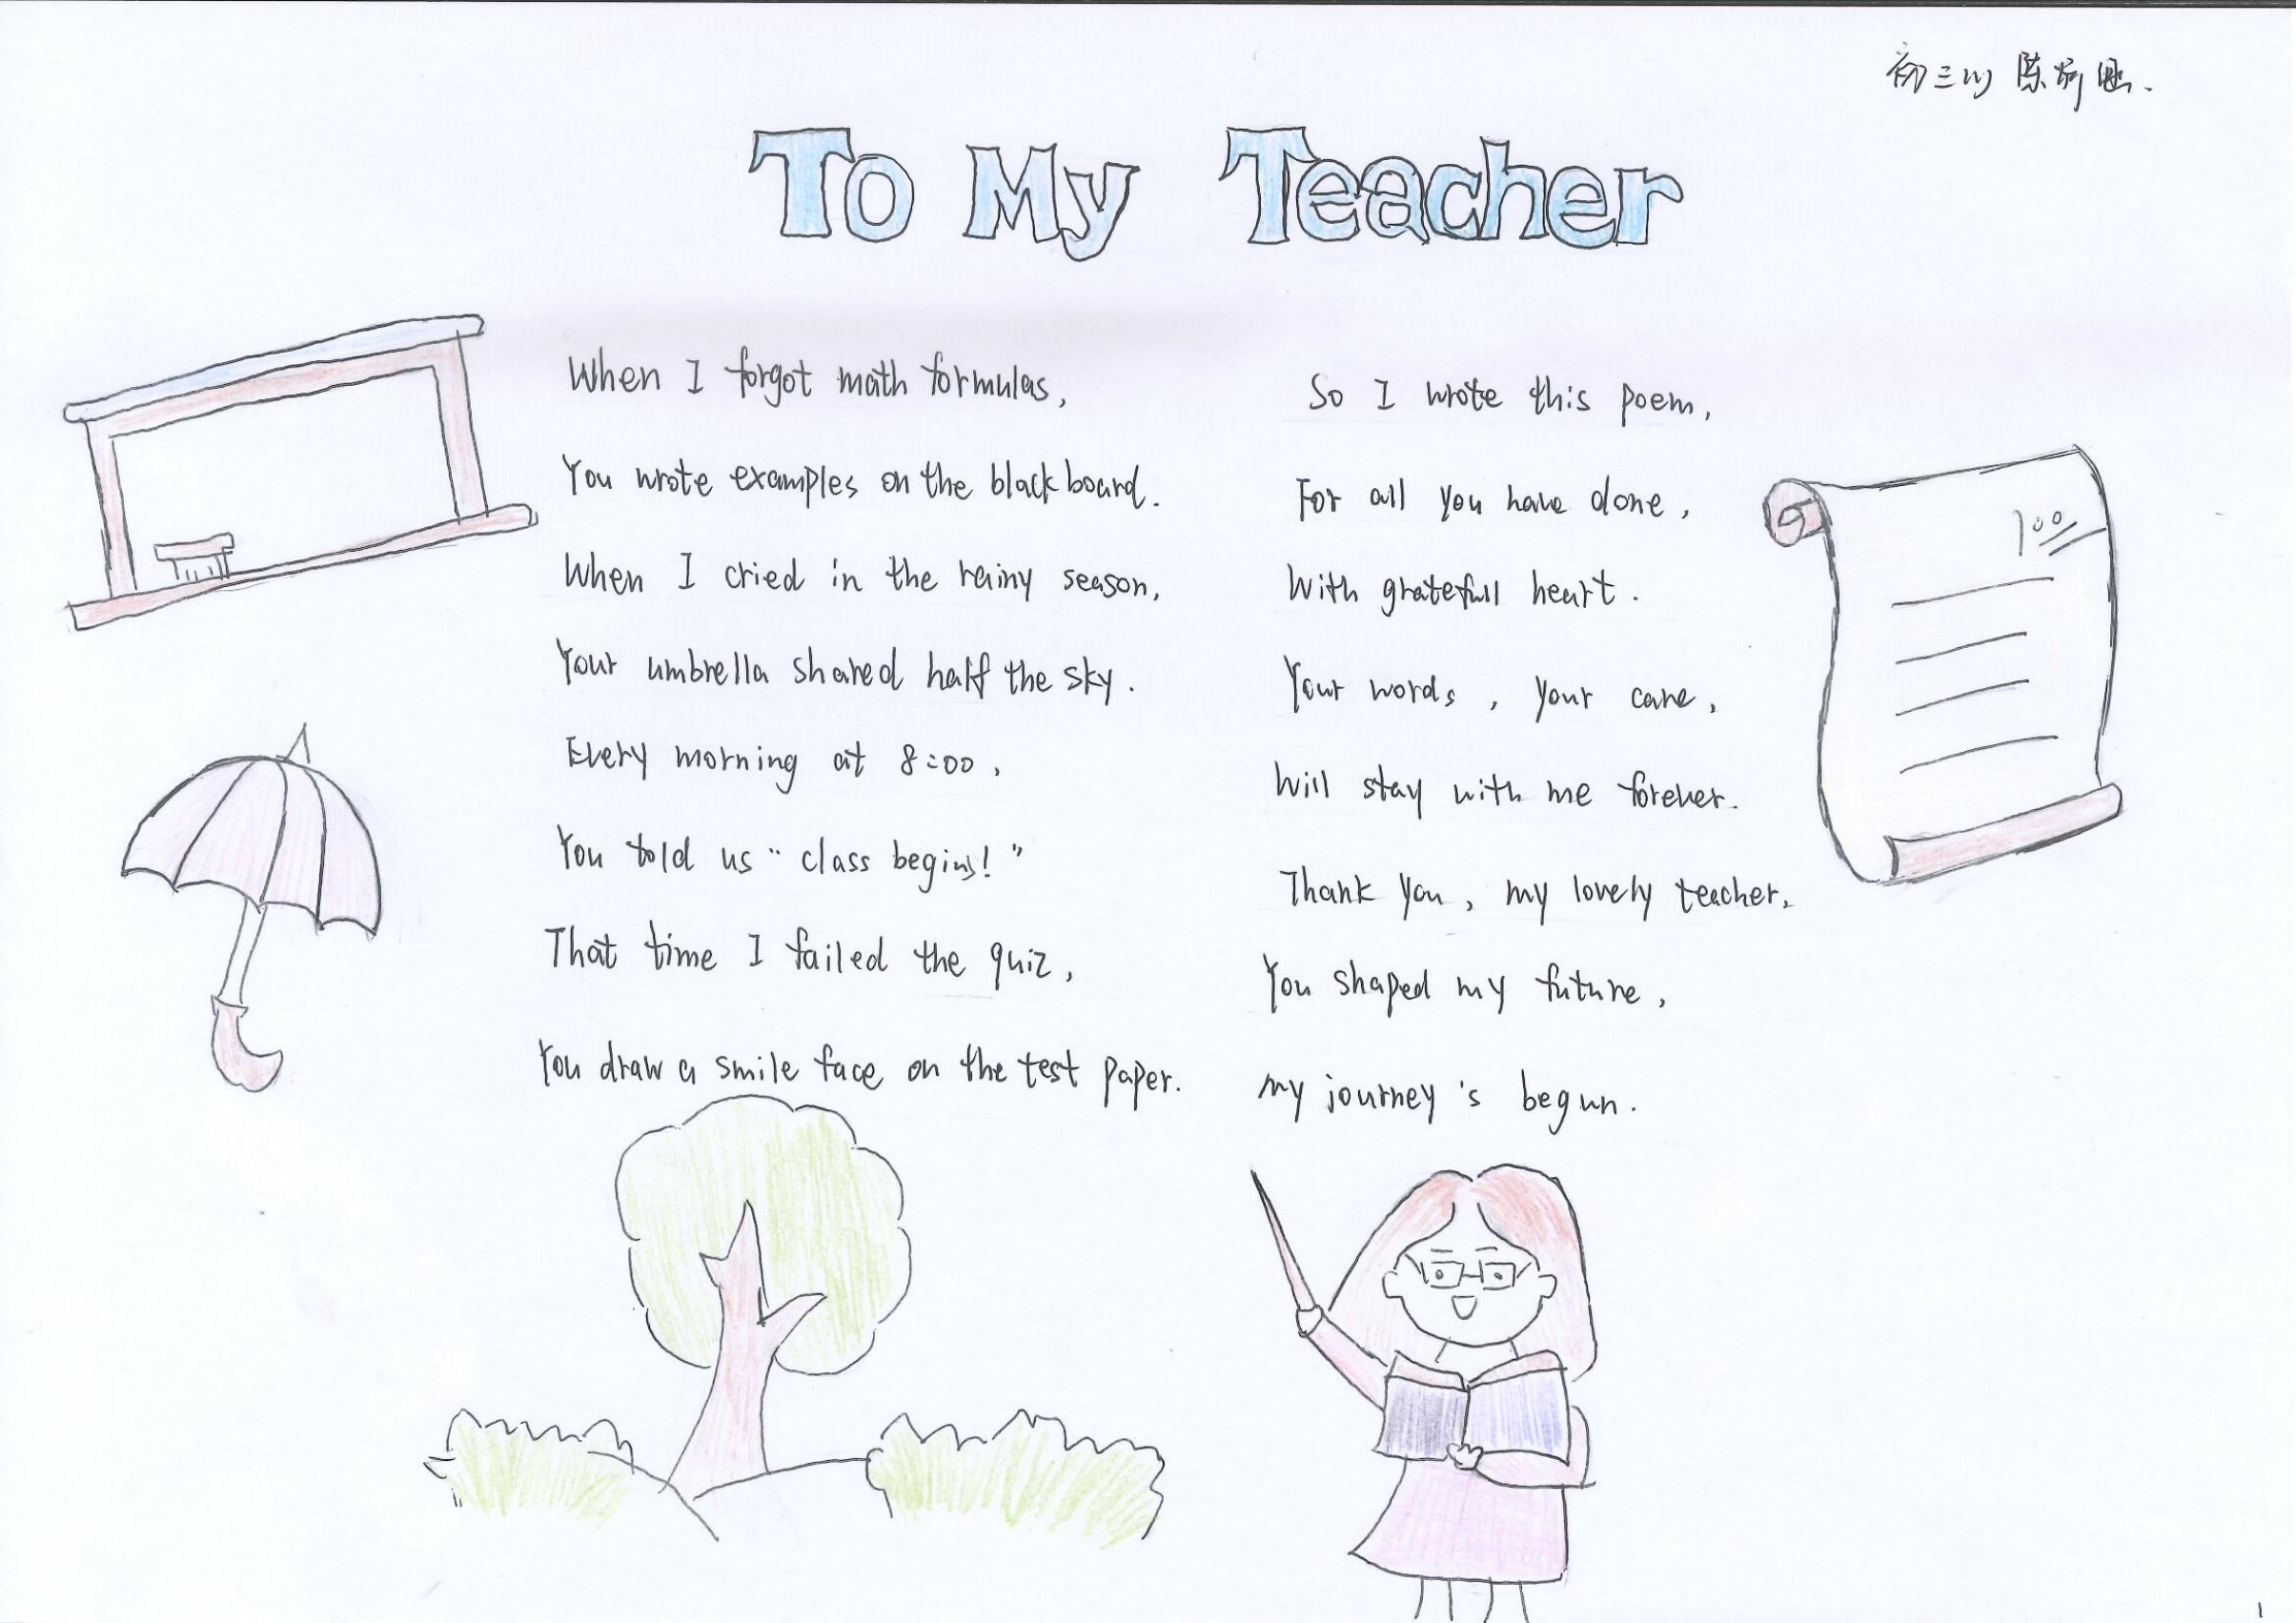 初三(1) 陈
To My Teacher
When I forgot math formulas,
You wrote examples on the blackboard.
When I cried in the rainy season,
Your umbrella shared half the sky.
Every morning at 8:00,
You told us "class begins!"
That time I failed the quiz,
You draw a smile face on the test paper.
So I wrote this poem,
For all you have done,
With gratefull heart.
Your words, your care,
Will stay with me forever.
Thank you, my lovely teacher,
You shaped my future,
my journey's begun.
100
1